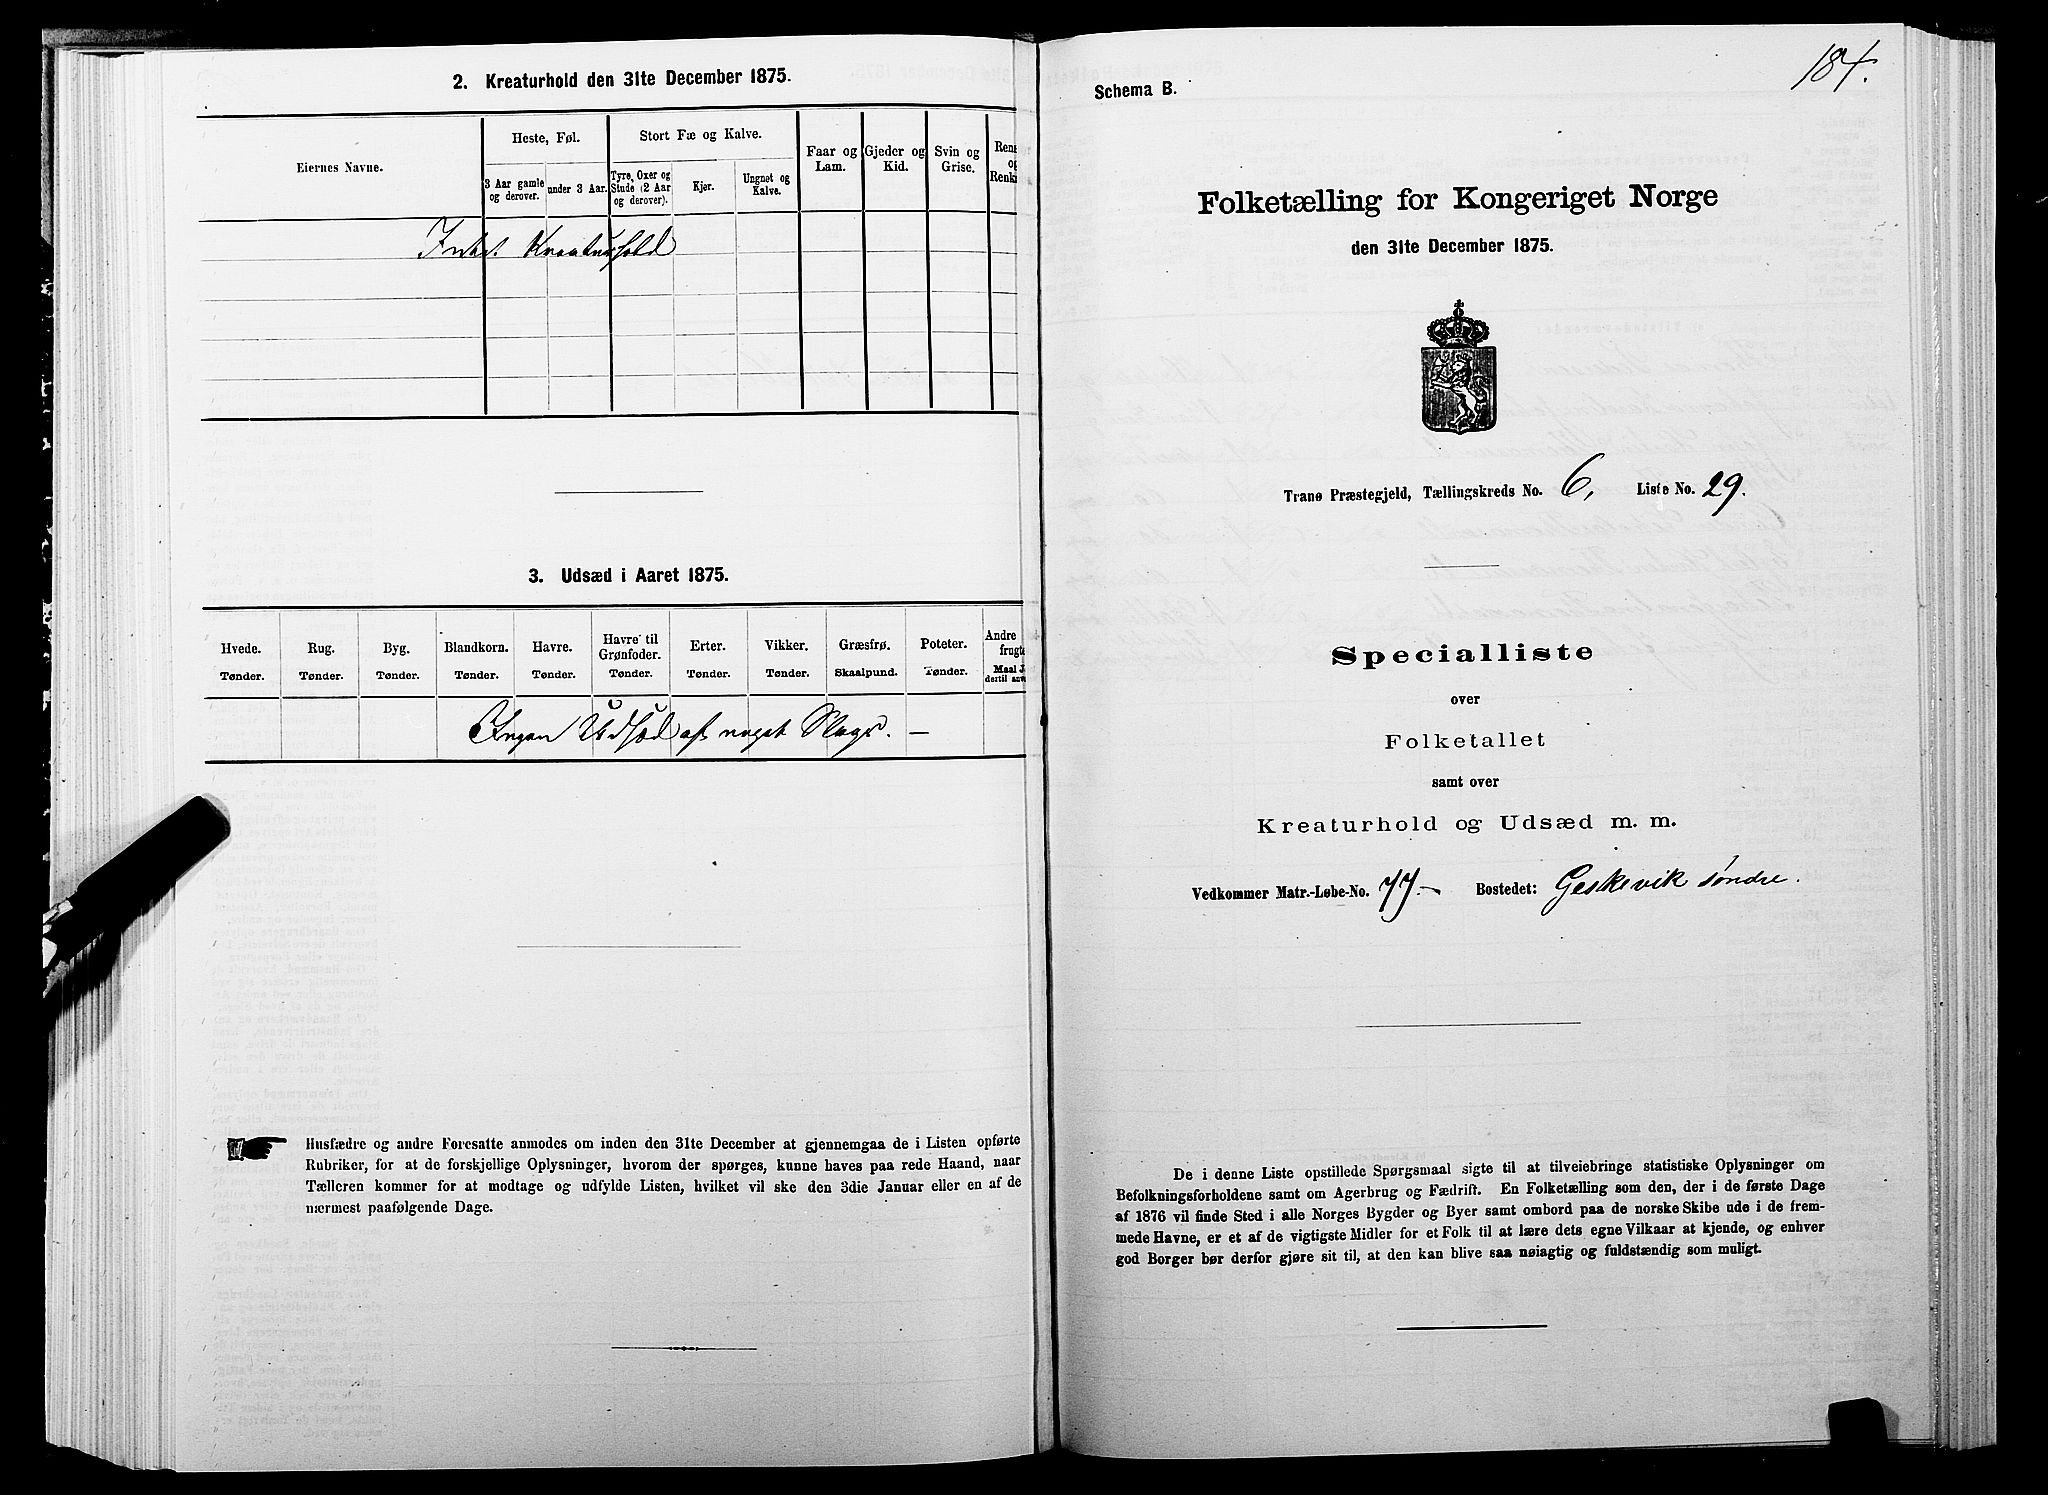 2. Kreaturhold den 31te December 1875.
Eiernes Navne.
Heste, Føl.
Stort Fæ og Kalve.
Faar og
Lam.
Gjeder og
Kid.
Svin og
Grise.
Rens
og
Renk
3 Aar gamle
og derover.
under 3 Aar.
Tyre, Oxer og
Stude (2 Aar
og derover).
Kjør.
Ungnøt og
Kalve.
Intet Kreaturhold
3. Udsæd i Aaret 1875.
Hvede.
Rug.
Byg.
Blandkorn.
Havre.
Havre til
Grønfoder.
Erter.
Vikker.
Græsfrø.
Poteter.
Andre
frugt
Tønder.
Tønder.
Tønder.
Tønder.
Tønder.
Tønder.
Tønder.
Tønder.
Skaalpund.
Tønder.
Maal J
dertil anv
Ingen Udsæd af noget Slags. —
Husfædre og andre Foresatte anmodes om inden den 31te December at gjennemgaa de i Listen opførte
Rubriker, for at de forskjellige Oplysninger, hvorom der spørges, kunne haves paa rede Haand, naar
Tælleren kommer for at modtage og udfylde Listen, hvilket vil ske den 3die Januar eller en af de
nærmest paafølgende Dage.
184.
Schema B.
Folketælling for Kongeriget Norge
den 31te December 1875.
Tranø Præstegjeld, Tællingskreds No. 6, Liste No. 29.
Specialliste
over
Folketallet
samt over
Kreaturhold og Udsæd m. m.
Vedkommer Matr.-Løbe-No. 77.— Bostedet: Geskevik søndre.
De i denne Liste opstillede Spørgsmaal sigte til at tilveiebringe statistiske Oplysninger om
Befolkningsforholdene samt om Agerbrug og Fædrift. En Folketælling som den, der i de første Dage
af 1876 vil finde Sted i alle Norges Bygder og Byer samt ombord paa de norske Skibe ude i de frem-
mede Havne, er et af de vigtigste Midler for et Folk til at lære dets egne Vilkaar at kjende, og enhver
god Borger bør derfor gjøre sit til, at den kan blive saa nøiagtig og fuldstændig som muligt.